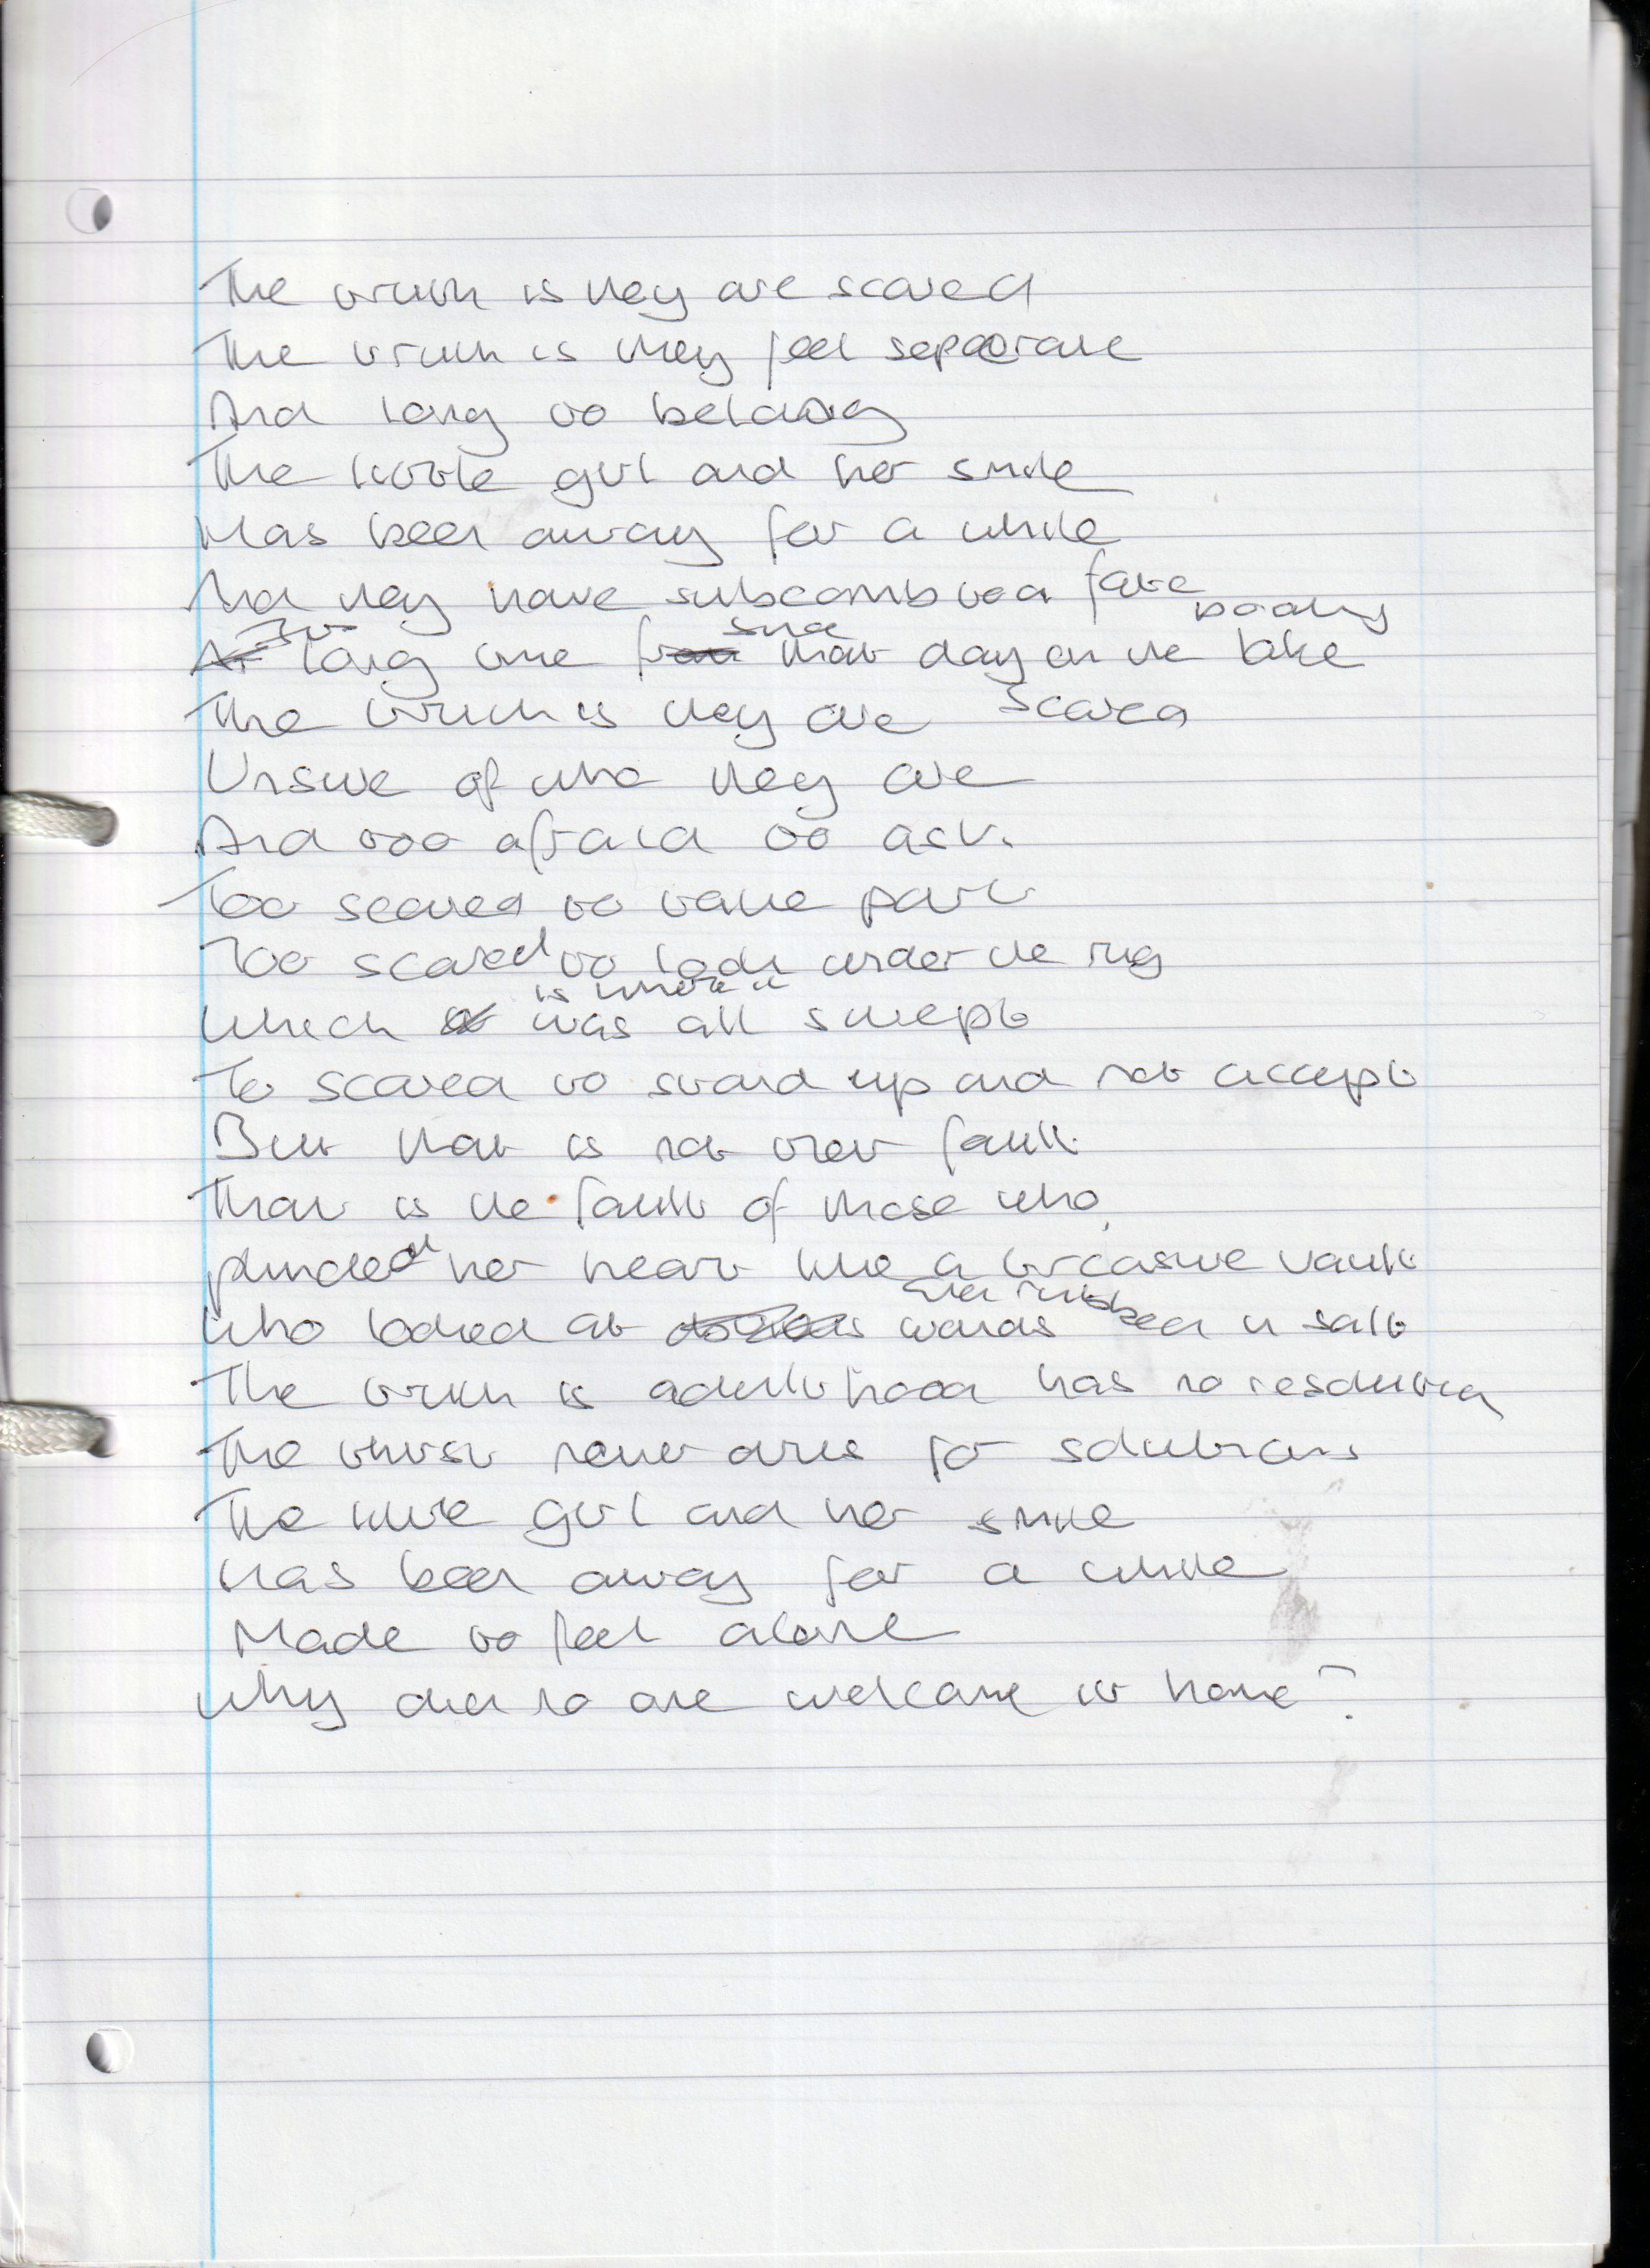 The truth is they are scared
The truth is they feel separate
And long to belong
The little girl and her smile
Has been away for a while
And they have subcomb to a fate
boating
It's since
long time that day on the lake
The truth is they are scared
Unsure of who they are
And too afraid to ask.
Too scared to take part
Too scared to look under the rug
is where it
Which was all swept
To scared to stand up and not accept
But that is not their fault
That is the fault of those who
plundered her heart like a treasure vault
rubbed
Who looked at wounds in salt
The truth is adulthood has no resolution
The thirst never dries for solutions
The little girl and her smile
Has been away for a while
Made to feel alone
Why did no one welcome it home?